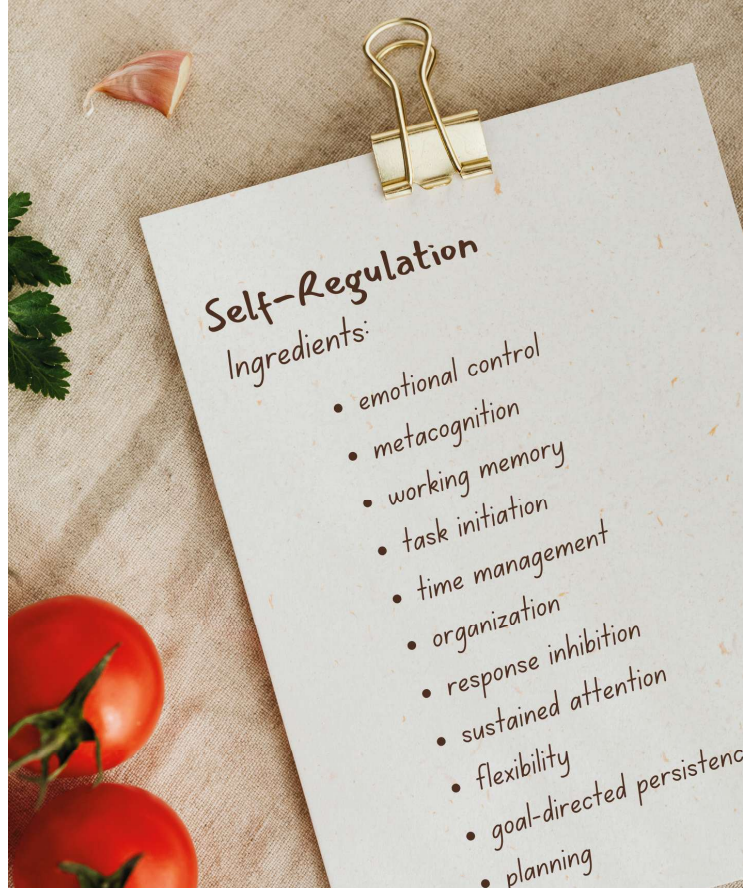 Self-Regulation
Ingredients:
• emotional control
• metacognition
• working memory
• task initiation
• time management
• organization
• response inhibition
• sustained attention
• flexibility
• goal-directed persistenc
• planning